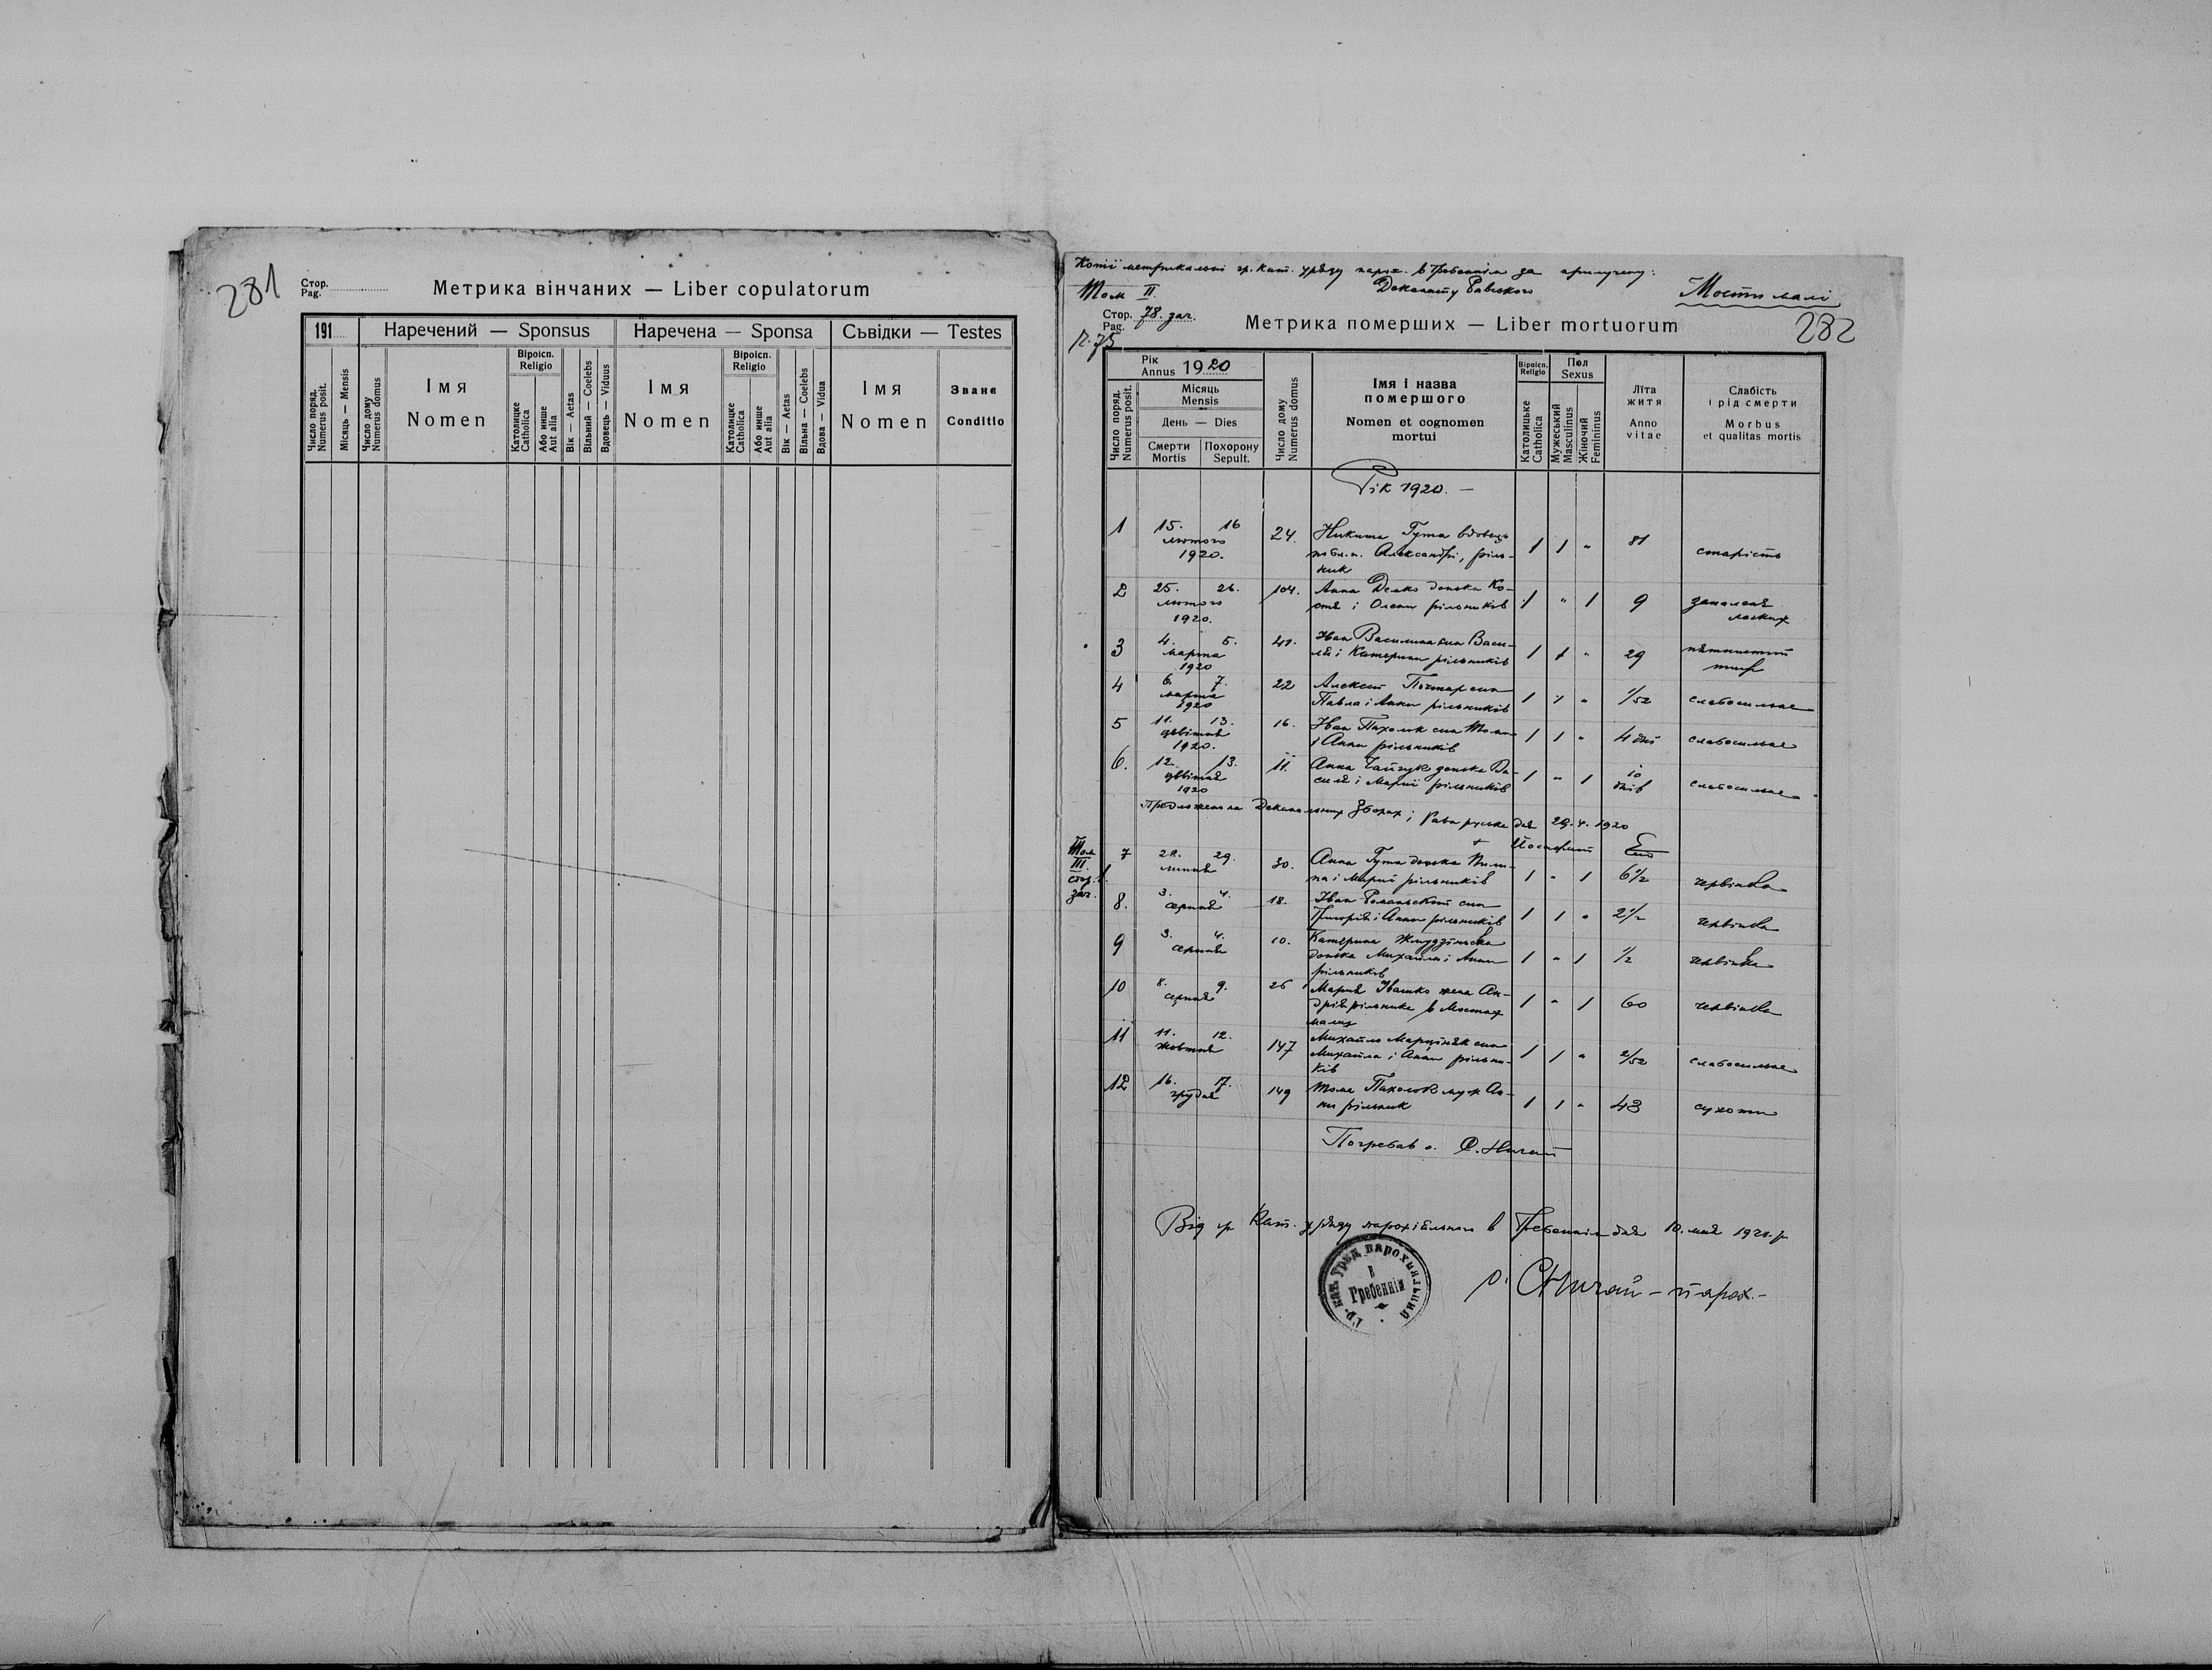 281
Стор.
Pag.
Метрика вінчаних — Liber copulatorum
191
Наречений — Sponsus
Наречена — Sponsa
Сьвідки — Testes
Число поряд.
Numerus posit.
Місяць — Mensis
Число дому
Numerus domus
Імя
Nomen
Віроісп.
Religio
Католицке
Catholica
Або инше
Aut alia
Вік — Aetas
Вільний — Coelebs
Вдовець — Viduus
Імя
Nomen
Віроісп.
Religio
Католицке
Catholica
Або инше
Aut alia
Вік — Aetas
Вільна — Coelebs
Вдова — Vidua
Імя
Nomen
Званє
Conditio
Копії метрикальні гр. кат. уряду парох. в Гребеннім за
Деканату Равского
Том II.
Мости малі
Стор.
Pag.
78. зач.
282
Метрика померших — Liber mortuorum
Рік
Annus
1920
Число поряд.
Numerus posit.
Місяць
Mensis
День — Dies
Смерти
Mortis
Похорону
Sepult.
Число дому
Numerus domus
Імя і назва
помершого
Nomen et cognomen
mortui
Віроісп.
Religio
Католицьке
Catholica
Пол
Sexus
Мужеський
Masculinus
Жіночий
Femininus
Літа
житя
Anno
vitae
Слабість
і рід смерти
Morbus
et qualitas mortis
Рік 1920. —
1 15. 16 лютого 1920. 24. Никита Гута вдовець
Александрі, рільник 1 1 " 81 старість
2 25. 26. лютого 1920. 104. Анна Демко донька Костя
і Олени рільників 1 " 1 9 запаленя
3 4. 5. марта 1920 41. Іван Василина син Василя
і Катерини рільників 1 1 " 29 пятнистий
тиф
4 6. 7. марта 1920 22 Алексій Почтар син
Павла і Анни рільників 1 1 " 1/52 слабосильне
5 11. 13. цвітня 1920. 16. Іван Пихолок син Томи
і Анни рільників 1 1 " 4 дні слабосильне
6. 12. 13. цвітня 1920 11. Анна донька Василя
і Марії рільників 1 " 1 10 днів слабосильне
Предложено на Деканальних Зборах; Рава руска дня 29.4.1920
Том
III.
стор. 1.
зач.
7 29. липня 30. Анна Гута донька Пилипа
і Марії рільників 1 " 1 6 1/2 червінка
8. 3. 4. серпня 18. Іван Романьский син
Григорія і Анни рільників 1 1 " 2 1/2 червінка
9 3. 4. серпня 10. Катерина
донька Михайла і Анни
рільників 1 " 1 1/2 червінка
10 8. 9. серпня 26 Мария Івашко жена Андрія
рільника в Мостах
малих 1 " 1 60 червінка
11 11. 12. жовтня 147 Михайло Марциняк син
Михайла і Анни рільників 1 1 " 2/52 слабосильне
12 16. 17. грудня 149 Тома Пихолок муж Анни
рільник 1 1 " 43 сухоти
Погребав о. С. Ничай
Від гр кат. уряду парохіяльного в Гребеннім дня 10. мая 1921. р
Гр. кат. Уряд парохіяльний
в
Гребеннім
о. С. Ничай — парох. —